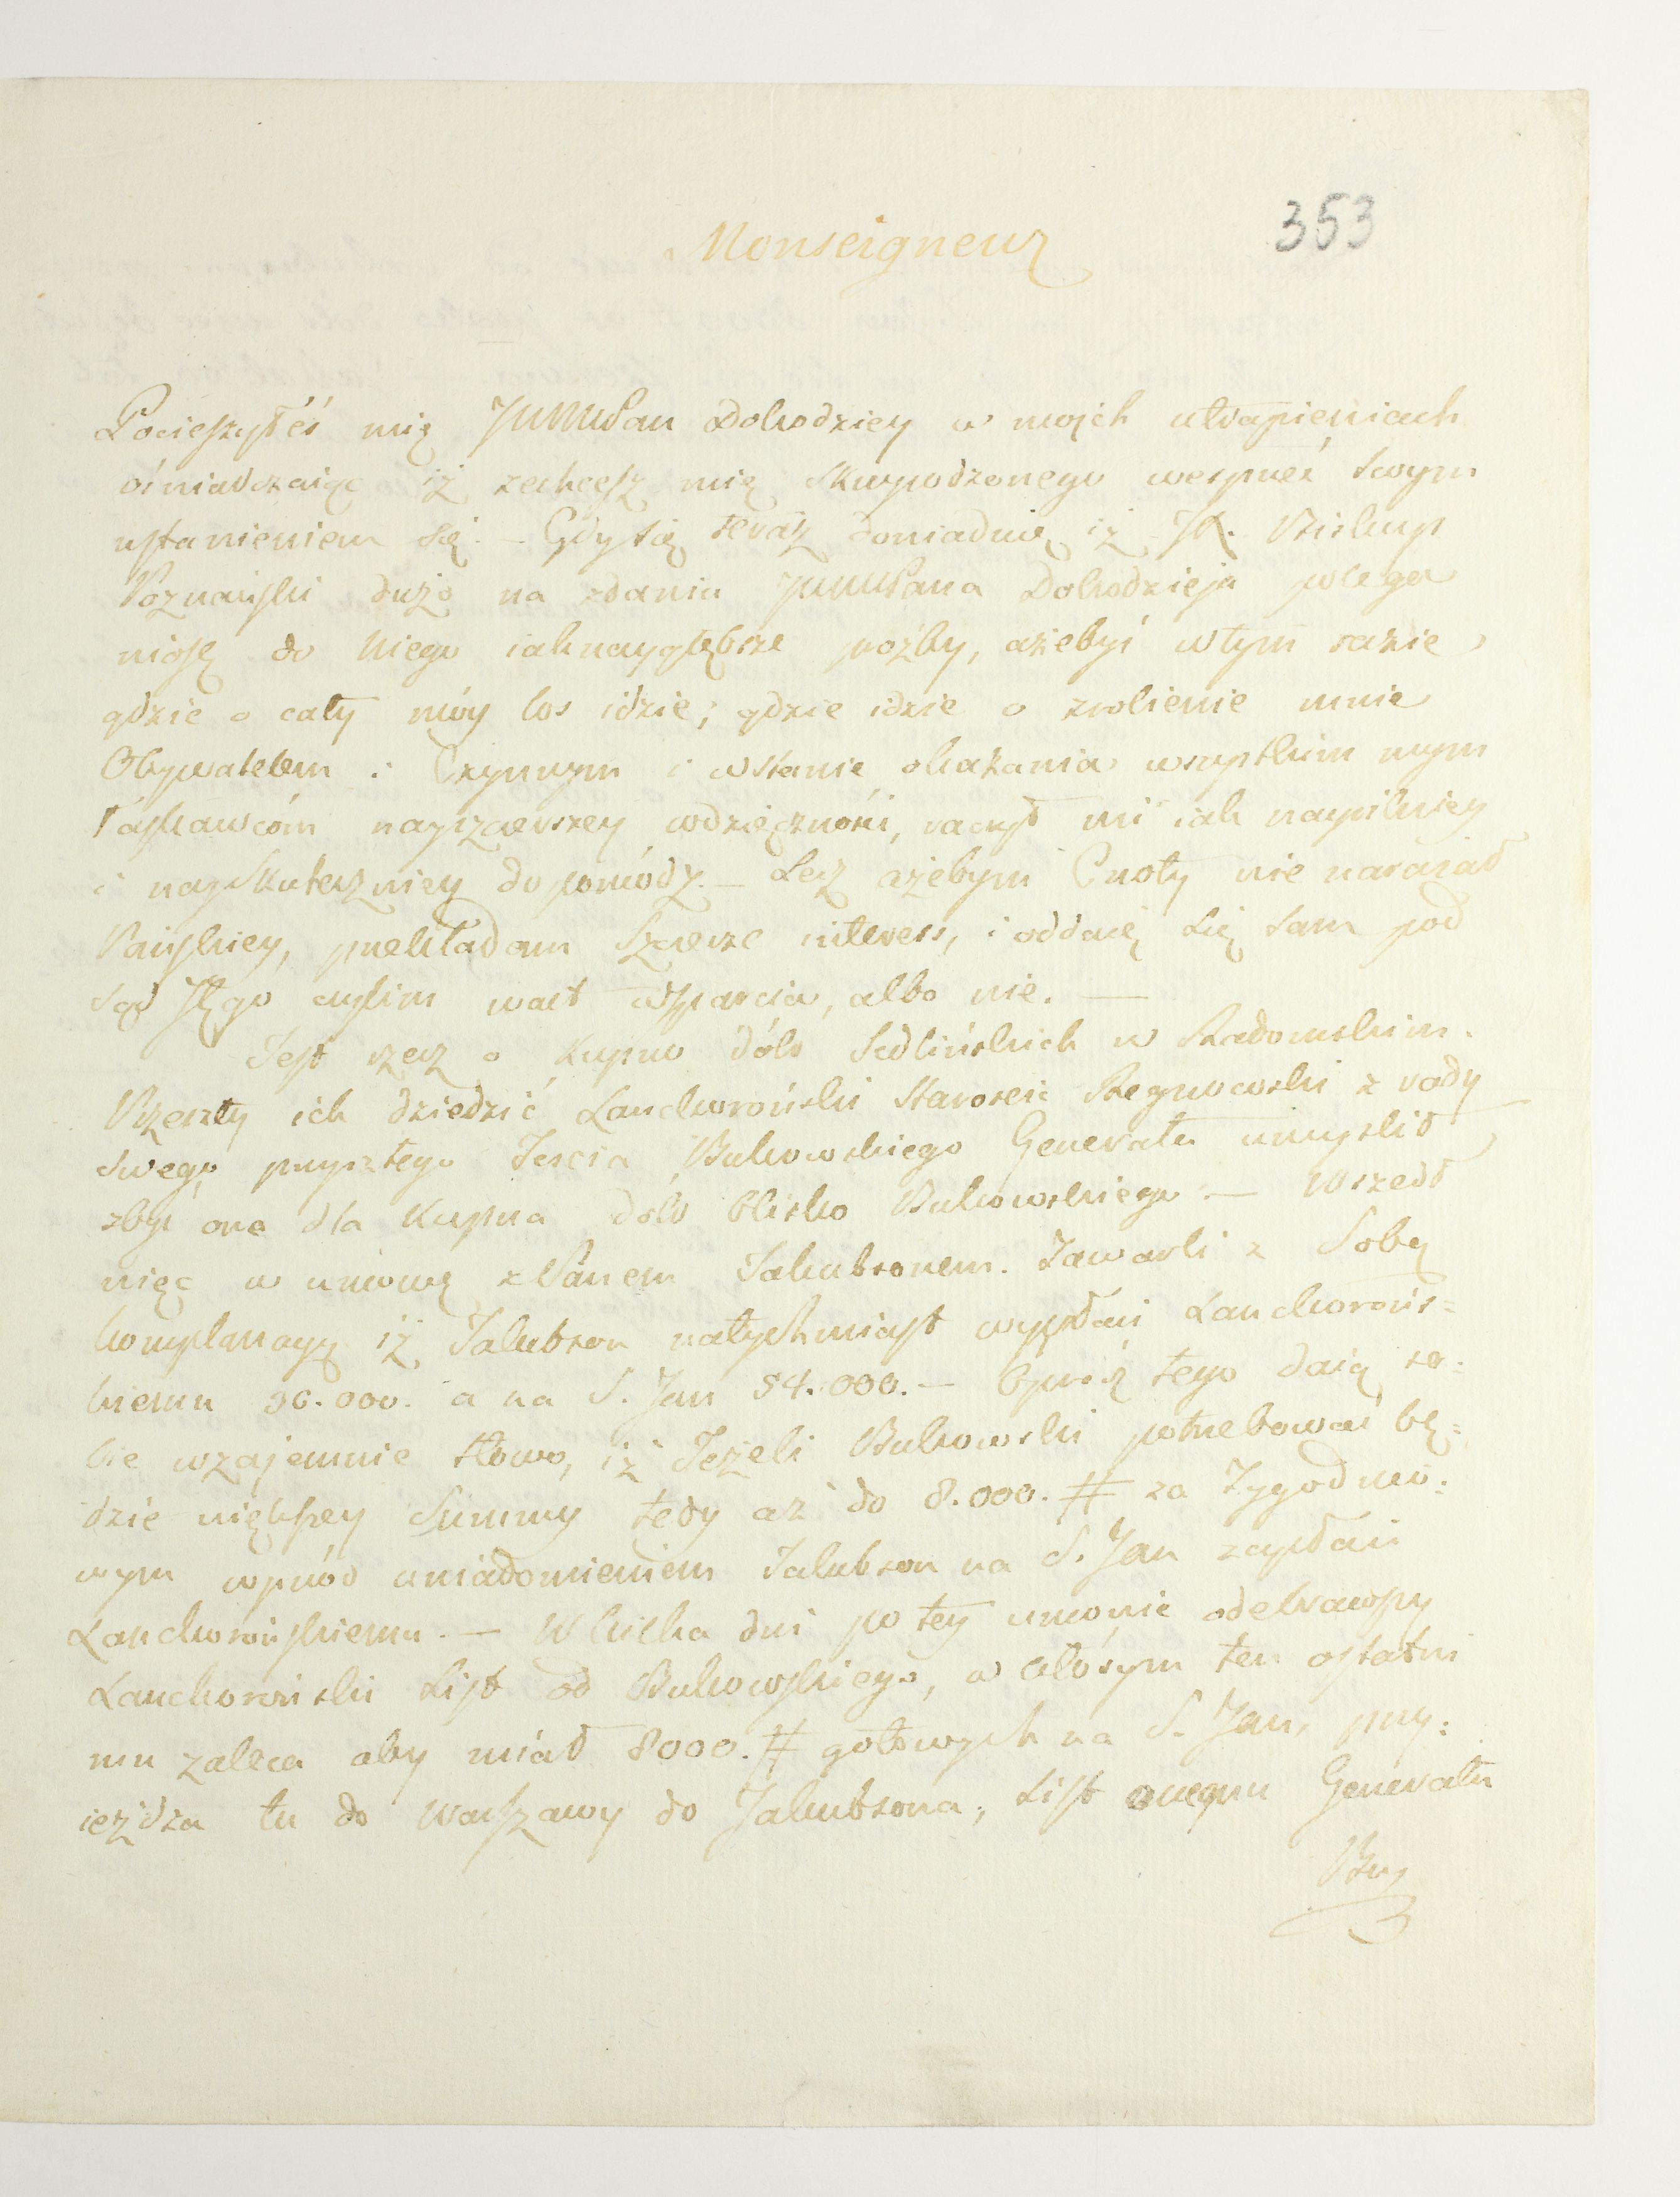 353
Monseigneur
Pocieszyłeś mię JWWMPan Dobrodziey w mojch utrapieniach
oświadczaiąc iż zechcesz mię skrzywdzonego wesprzeć swym
wstawieniem się. – Gdy się teraz dowiaduię iż JX. Biskup
Poznański dużo na zdaniu JWWMPana Dobrodzieja polega
niosę do Niego iaknaygłębsze proźby, ażebyś w tym razie,
gdzie o cały móy los idzie; gdzie idzie o zrobienie mnie
Obywatelem i Czynnym i w stanie okazania wszystkim mym
łaskawcóm nayszczerszey wdzięcznośći, raczył mi iak naypilniey
i nayskuteczniey dopomódz. – Lecz ażebym Cnoty nie narażał
Pańskiey, przekładam szczerze interess, i oddaię się sam pod
sąd Jego czylim wart wsparcia, albo nie. —
Jest rzecz o kupno dóbr Jedlińskich w Radomskim.
Przeszły ich dziedzić Lanckoroński Starosta Regnowski z rady
swego przyszłego Teścia Bukowskiego Generała umyslił
zbyć one dla kupna dóbr blisko Bukowskiego. — Wszedł
więc w umowę z Panem Jakubsonem. Zawarli z Sobą
komplanacyą iż Jakubson natychmiast wypłaci Lanckorońs=
kiemu 36.000. a na S. Jan 54.000. — Oprócz tego daią so=
bie wzajemnie słowo, iż Jeżeli Bukowski potrzebować bę=
dzie większey Summy tedy aż do 8.000. # za Tygodnio=
wym wprzód uwiadomieniem Jakubson na S. Jan zapłaci
Lanckorońskiemu. — W kilka dni po tey umowie odebrawszy
Lanckoroński List od Bukowskiego, w którym ten ostatni
mu zaleca aby miał 8000. # gotowych na S. Jan, przy=
ieżdza tu do Warszawy do Jakubsona, List Generała
Buk